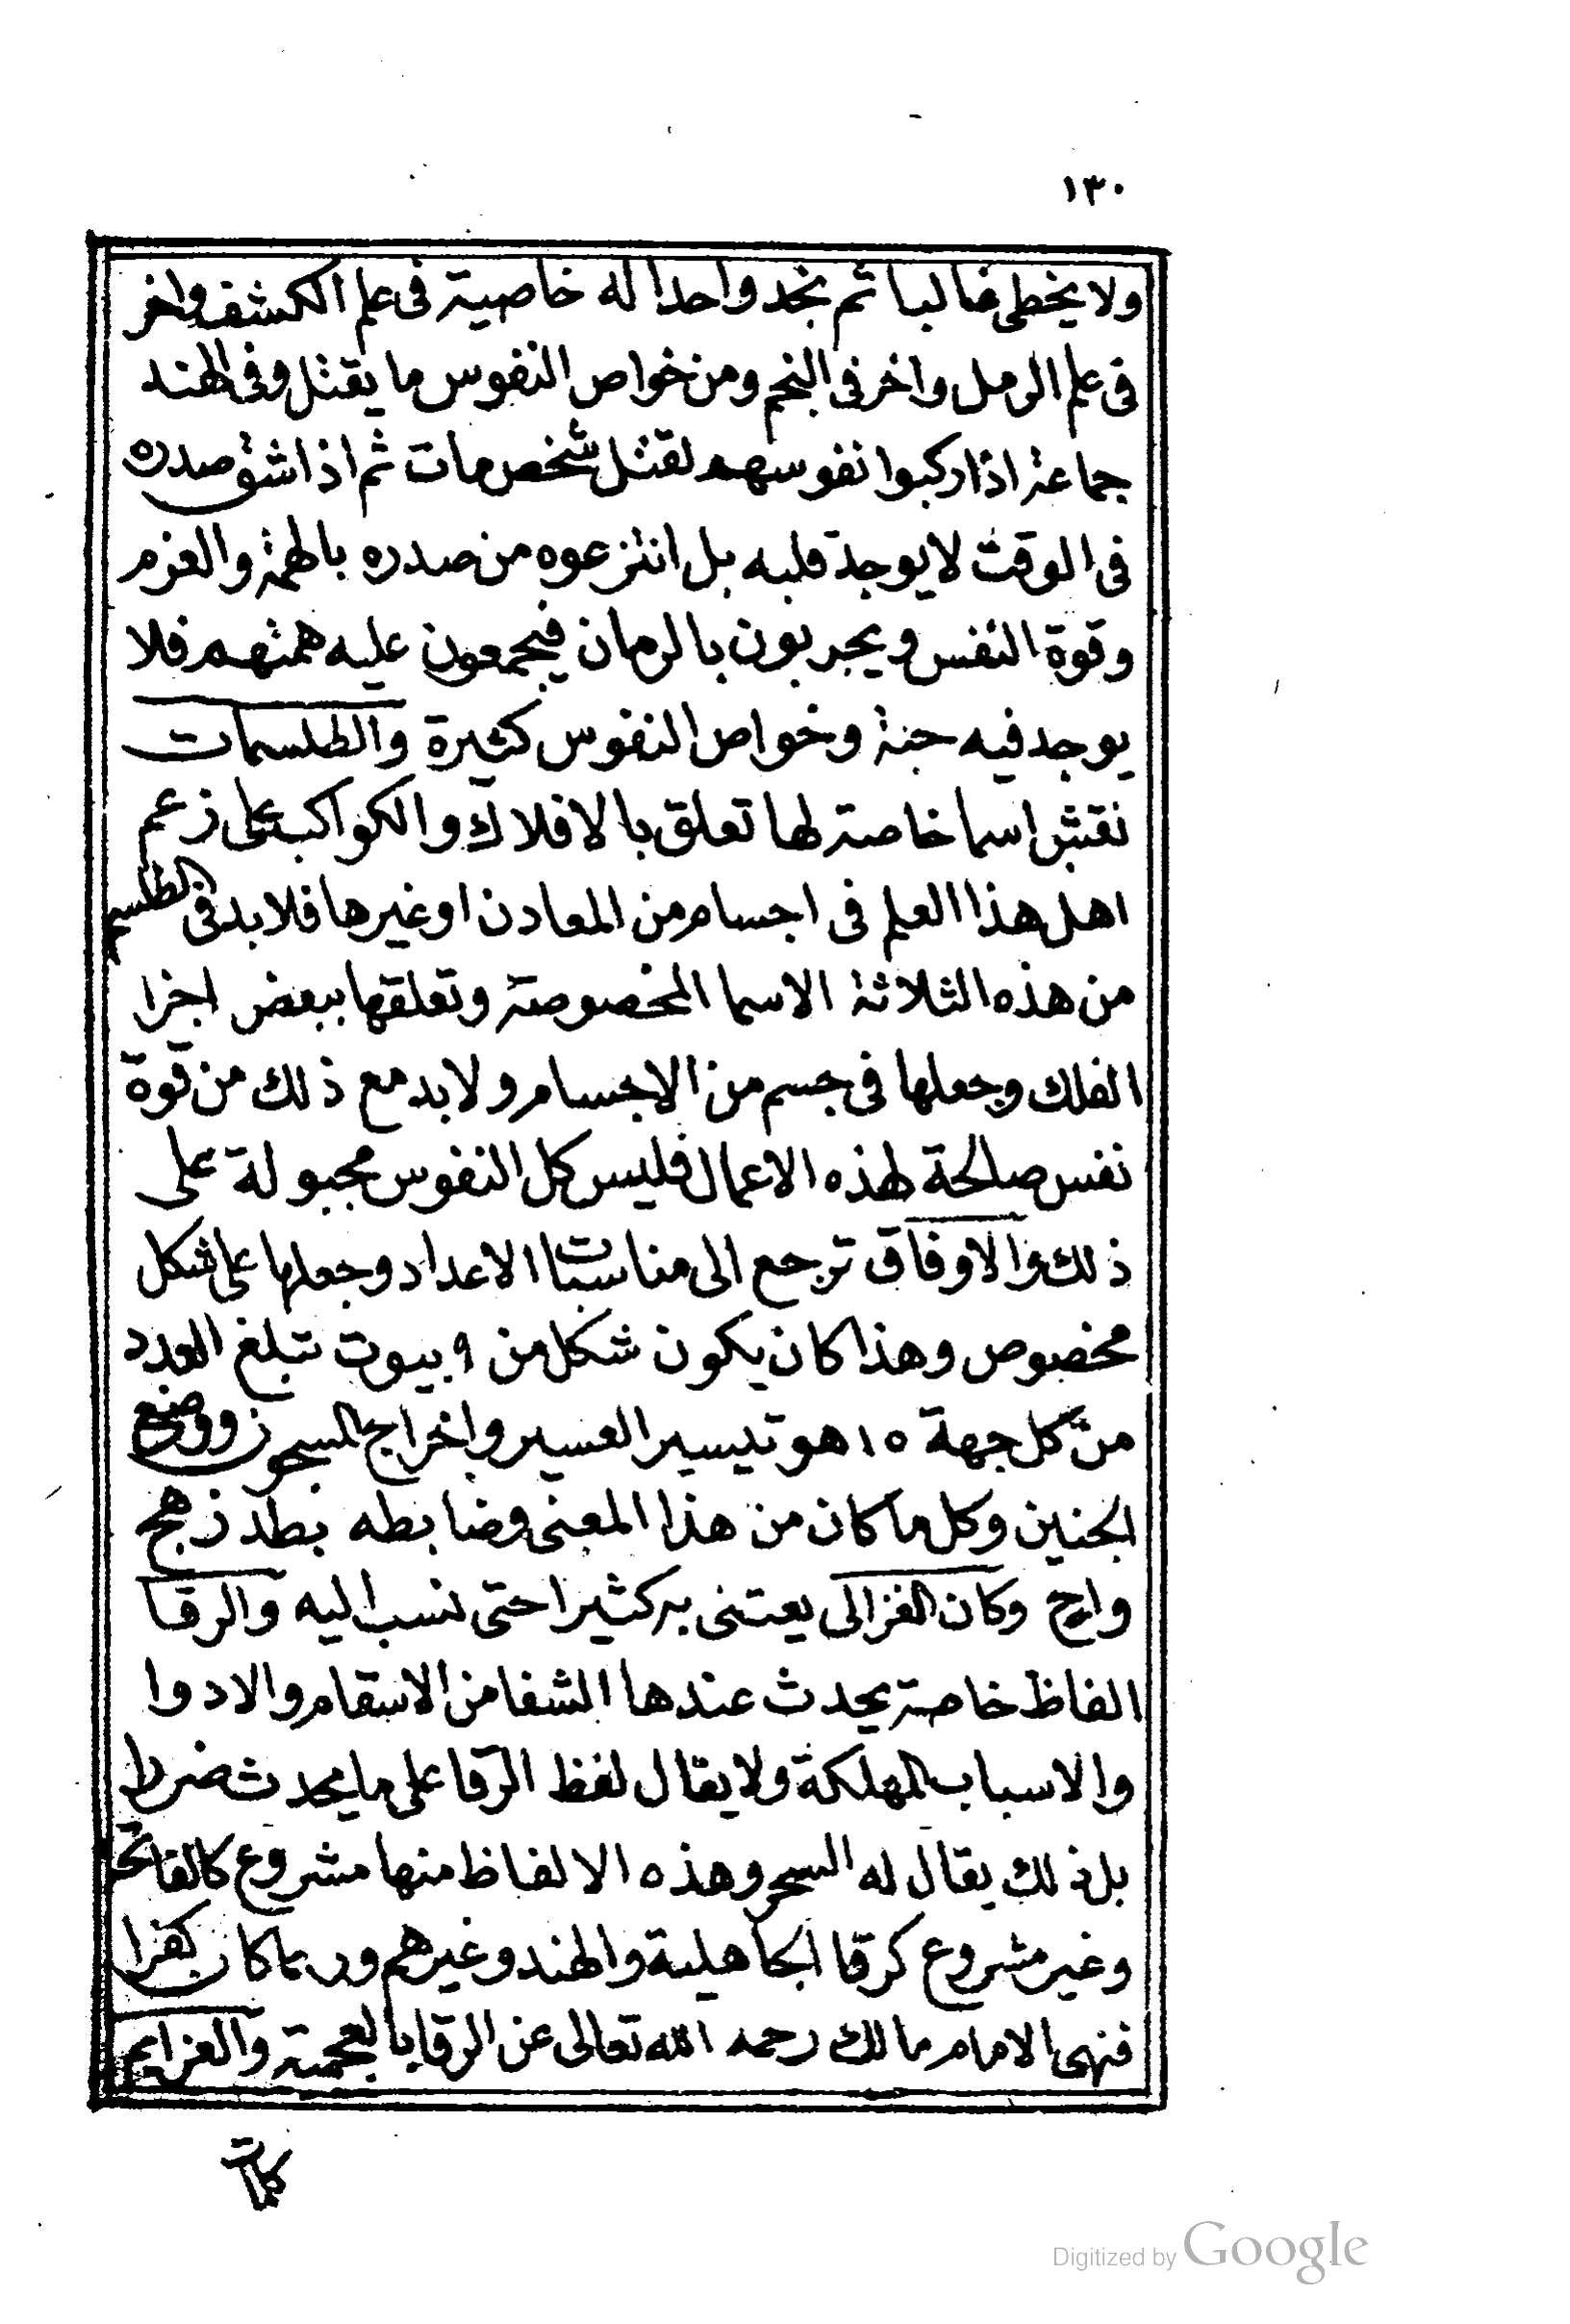 ١٣٠
ولا يخطى غالبا ثم نجد واحدا له خاصية فى علم الكشف واخر
فى علم الرمل واخر فى النجم ومن خواص النفوس ما يقتل وفى الهند
جماعة اذا ركبوا نفوسهم لقتل شخص مات ثم اذا شق صدره
فى الوقت لا يوجد قلبه بل انتزعوه من صدره بالهمة والعزم
وقوة النفس ويجربون بالرمان فيجمعون عليه همتهم فلا
يوجد فيه حبة وخواص النفوس كثيرة والطلسمات
نقش اسما خاصة لها تعلق بالافلاك والكواكب على زعم
اهل هذا العلم فى اجسام من المعادن او غيرها فلا بد فى الطلسم
من هذه الثلاثة الاسما المخصوصة وتعلقها ببعض اجزا
الفلك وجعلها فى جسم من الاجسام ولا بد مع ذلك من قوة
نفس صالحة لهذه الاعمال فليس كل النفوس مجبولة على
ذلك والاوفاق ترجع الى مناسبات الاعداد وجعلها على شكل
مخصوص وهذا كان يكون شكل من ٩ بيوت تبلغ العدد
من كل جهة ١٥ هو تيسير العسير واخراج المسجون ووضع
الجنين وكل ما كان من هذا المعنى وضابطه بطد زهج
واح وكان الغزالى يعتنى به كثيرا حتى نسب اليه والرقا
الفاظ خاصة يحدث عندها الشفا من الاسقام والادوا
والاسباب المهلكة ولا يقال لفظ الرقا على ما يحدث ضررا
بل ذلك يقال له السحر وهذه الالفاظ منها مشروع كالفاتحة
وغير مشروع كرقا الجاهلية والهند وغيرهم وربما كان كفرا
فنهى الامام مالك رحمه الله تعالى عن الرقا بالعجمية والعزايم
كلمات
Digitized by Google